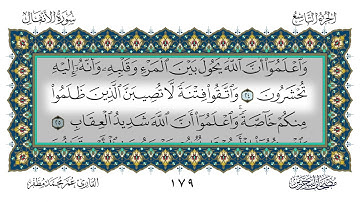 سورة الأنفال
الجزء التاسع
وَٱعْلَمُوٓا۟ أَنَّ ٱللَّهَ يَحُولُ بَيْنَ ٱلْمَرْءِ وَقَلْبِهِۦ وَأَنَّهُۥٓ إِلَيْهِ
تُحْشَرُونَ ٢٤ وَٱتَّقُوا۟ فِتْنَةً لَّا تُصِيبَنَّ ٱلَّذِينَ ظَلَمُوا۟
مِنكُمْ خَآصَّةً ۖ وَٱعْلَمُوٓا۟ أَنَّ ٱللَّهَ شَدِيدُ ٱلْعِقَابِ ٢٥
القارئ عمر محمد مظفر
١٧٩